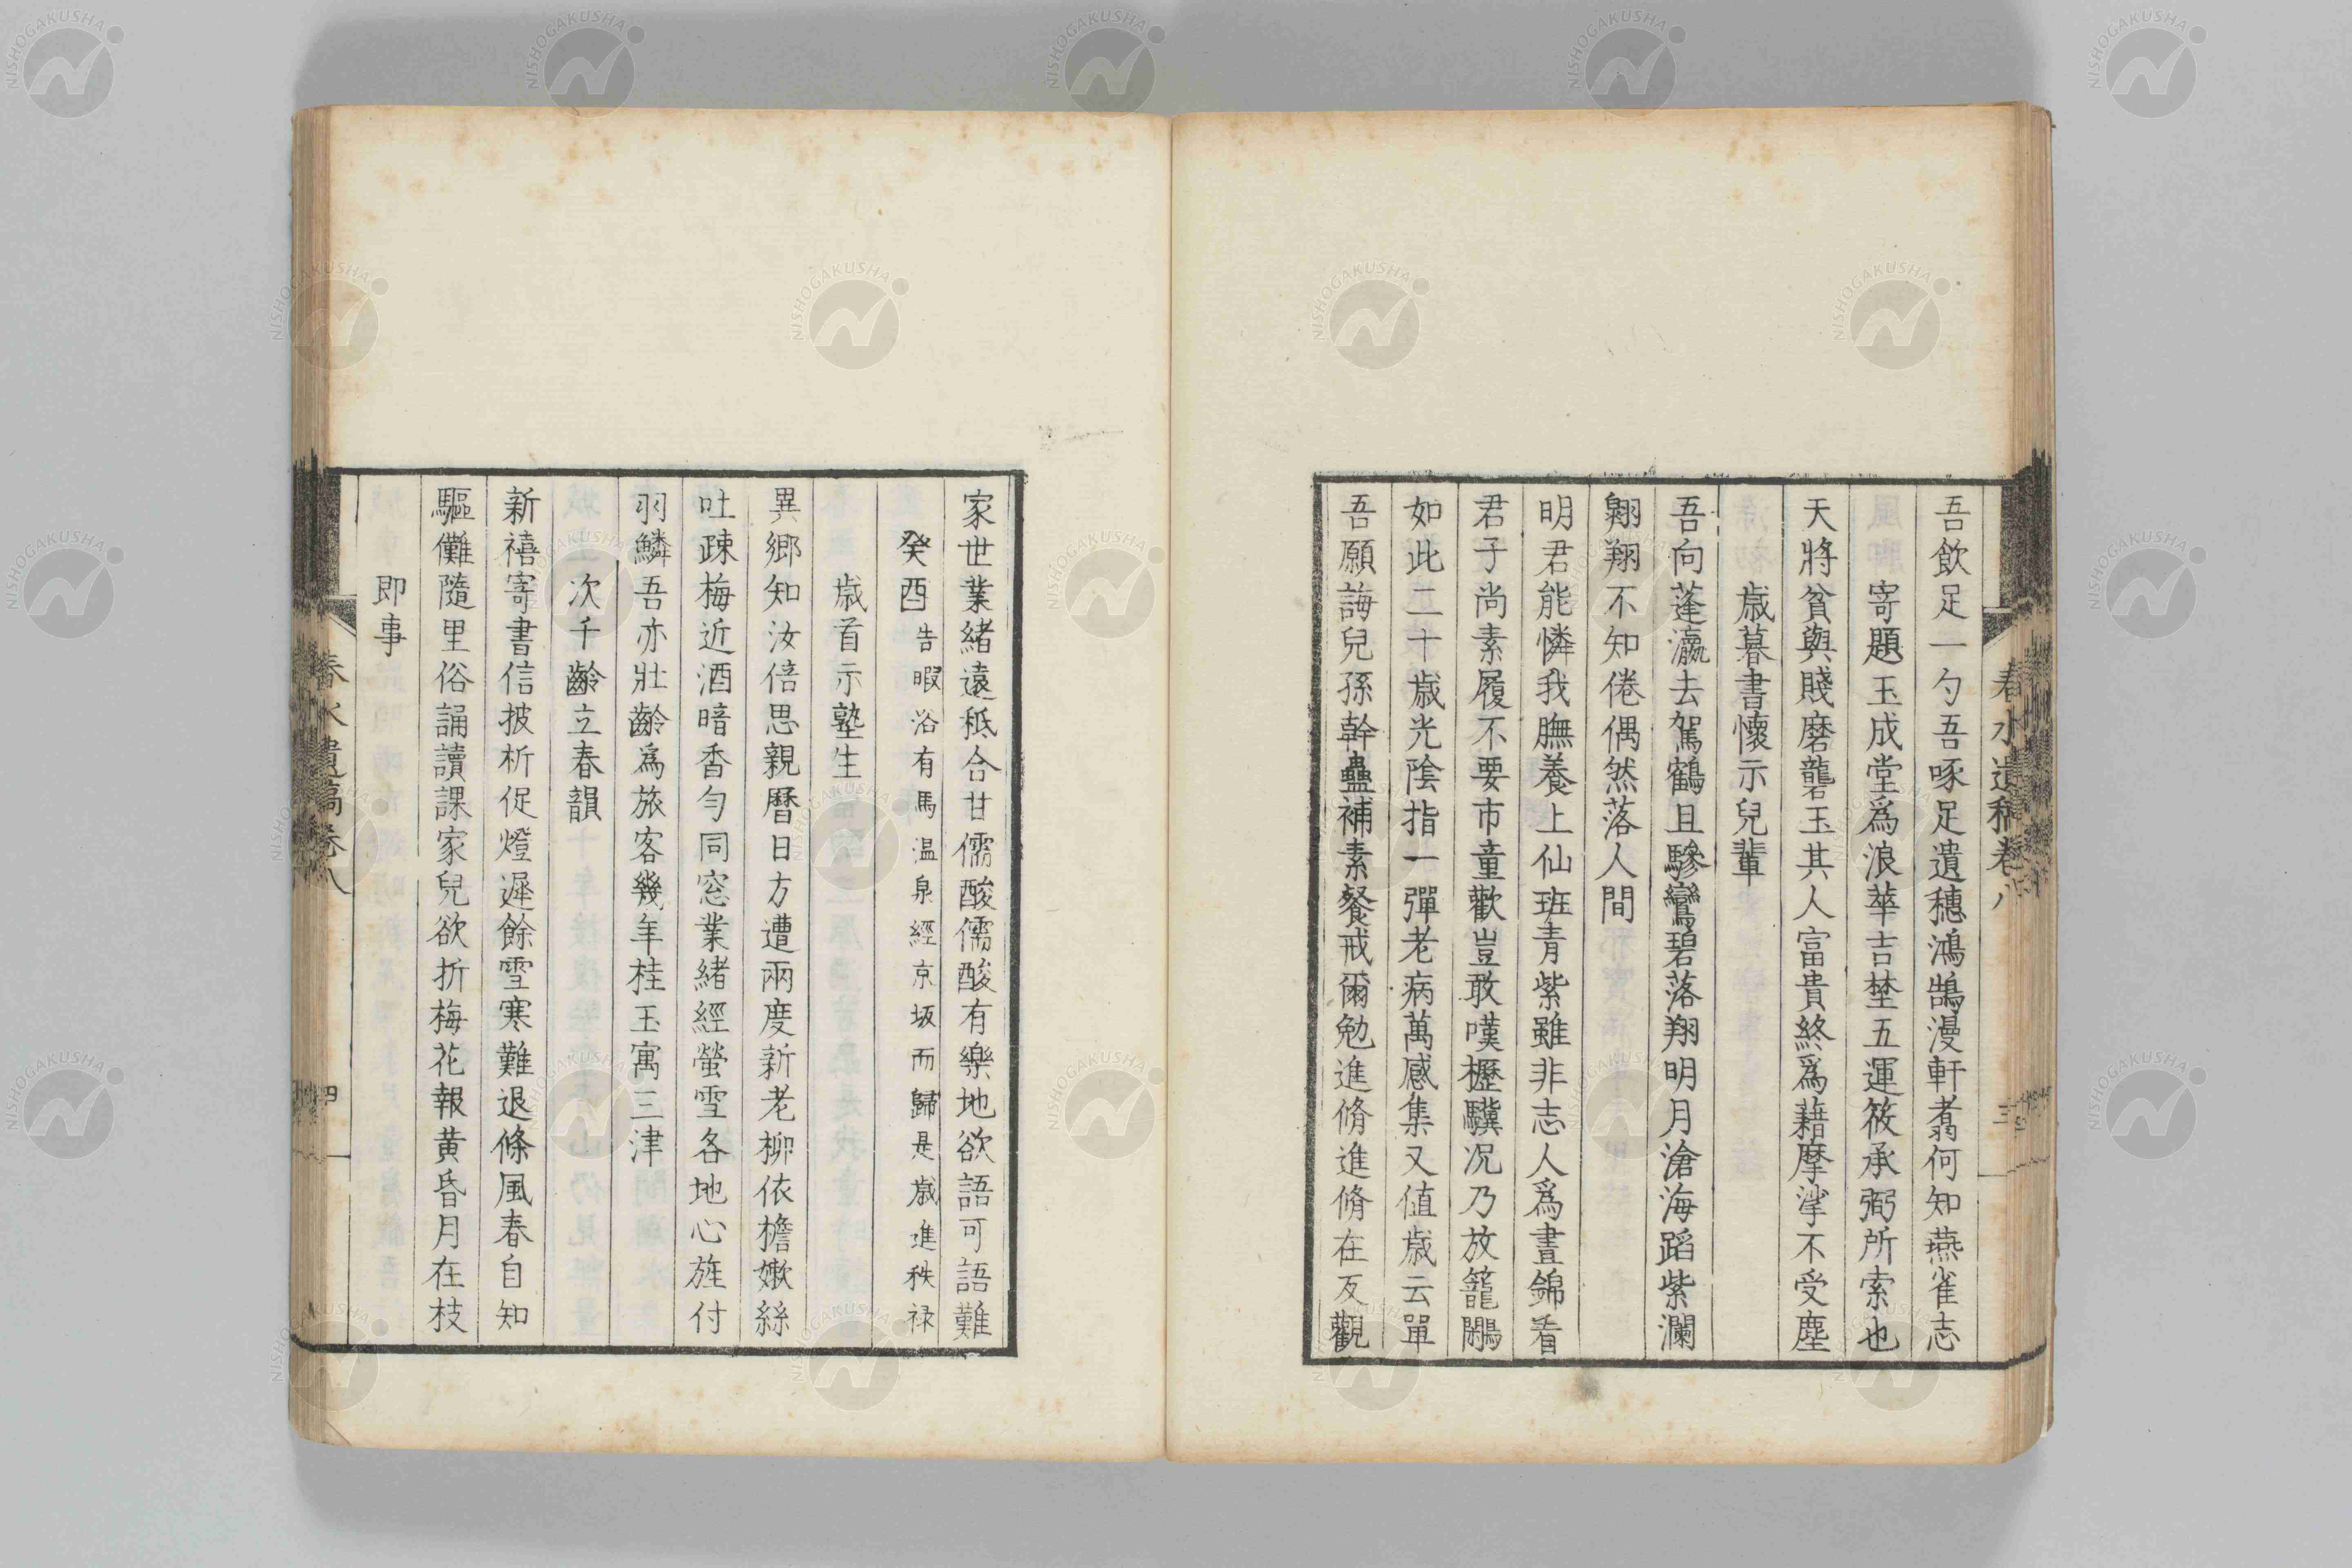 春水遺稿卷八
三
吾飲足一勺吾啄足遺穗鴻鵠漫軒翥何知燕雀志
寄題玉成堂爲浪華吉埜五運筱承弼所索也
天將貧與賤磨礱玉其人富貴終爲藉摩挲不受塵
歳暮書懷示兒輩
吾向蓬瀛去駕鶴且驂鸞碧落翔明月滄海蹈紫瀾
翺翔不知倦偶然落人間
明君能憐我膴養上仙班青紫雖非志人爲晝錦看
君子尚素履不要市童歡豈敢嘆櫪驥况乃放籠鷴
如此二十歳光陰指一彈老病萬感集又値歳云單
吾願誨兒孫幹蠱補素餐戒爾勉進脩進脩在反觀
家世業緒遠秪合甘儒酸儒酸有樂地欲語可語難
癸酉告暇浴有馬温泉經京坂而歸是歳進秩禄
歳首示塾生
異郷知汝倍思親曆日方遭兩度新老柳依檐嫩絲
吐疎梅近酒暗香勻同窓業緒經螢雪各地心旌付
羽鱗吾亦壯齡爲旅客幾年桂玉寓三津
次千齡立春韻
新禧寄書信披析促燈遲餘雪寒難退條風春自知
驅儺隨里俗誦讀課家兒欲折梅花報黄昏月在枝
即事
春水遺稿卷八
四
NISHOGAKUSHA